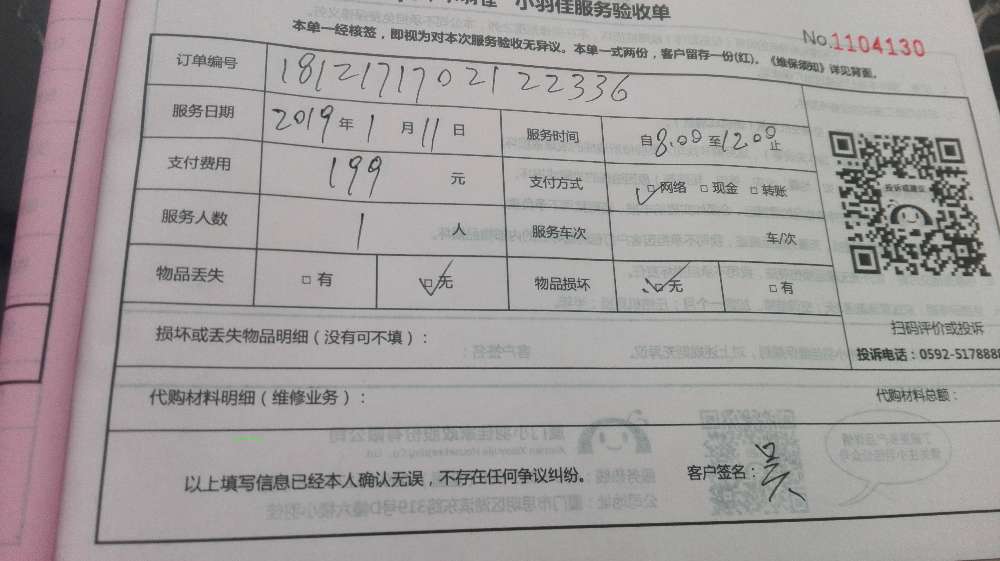 小羽佳服务验收单
No.1104130
本单一经核签，即视为对本次服务验收无异议。本单一式两份，客户留存一份(红)。《维保须知》详见背面。
订单编号 18121717021 22336
服务日期 2019年1月11日 服务时间 自8.00至12.00止
支付费用 199 元 支付方式 ☑网络 □现金 □转账
服务人数 1 人 服务车次 车/次
物品丢失 □有 ☑无 物品损坏 ☑无 □有
投诉或建议
扫码评价或投诉
投诉电话：0592-5178888
损坏或丢失物品明细（没有可不填）：
代购材料明细（维修业务）： 代购材料总额：
以上填写信息已经本人确认无误，不存在任何争议纠纷。 客户签名：吴